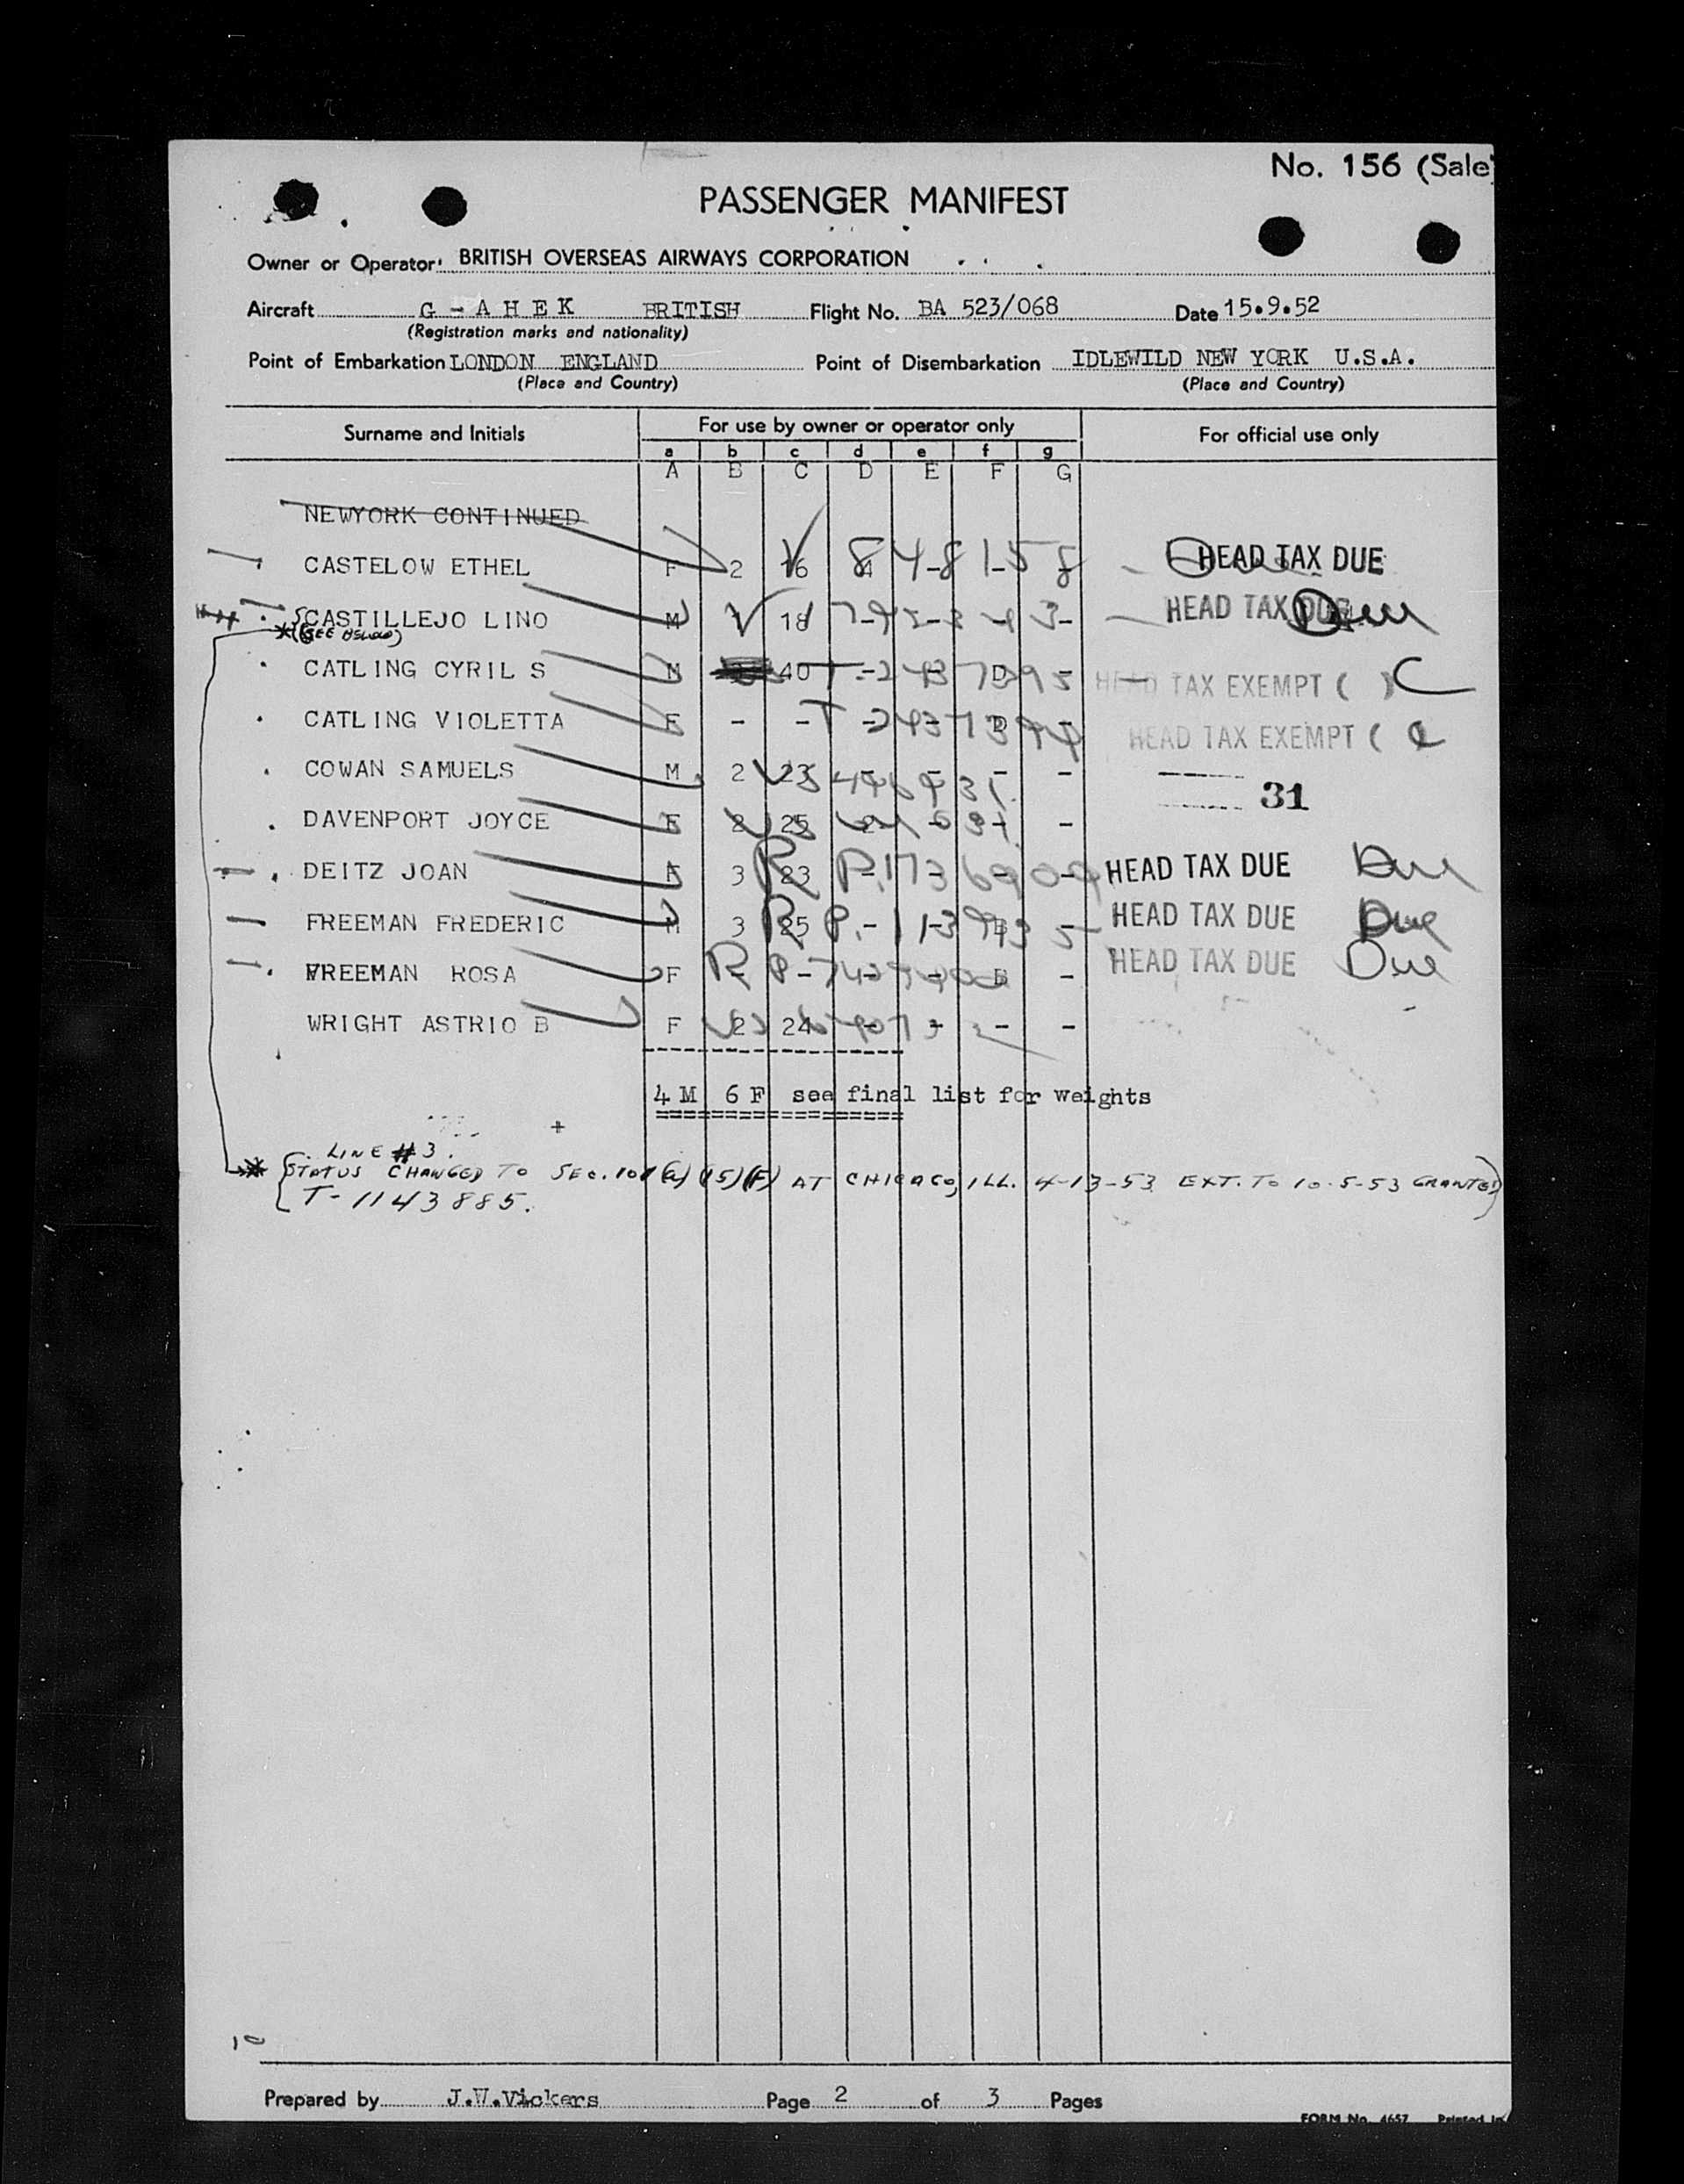 No. 156 (Sale)
PASSENGER MANIFEST
Owner or Operator: BRITISH OVERSEAS AIRWAYS CORPORATION
Aircraft G - A H E K BRITISH Flight No. BA 523/068 Date 15.9.52
(Registration marks and nationality)
Point of Embarkation LONDON ENGLAND Point of Disembarkation IDLEWILD NEW YORK U.S.A.
(Place and Country) (Place and Country)
Surname and Initials For use by owner or operator only For official use only
a b c d e f g
A B C D E F G
NEWYORK CONTINUED
CASTELOW ETHEL F 2 16 4 848158 HEAD TAX DUE
CASTILLEJO LINO M 1 18 - - - - HEAD TAX DUE Due
*(SEE BELOW)
CATLING CYRIL S M 40 - - D - HEAD TAX EXEMPT ( ) C
CATLING VIOLETTA F - - - - D - HEAD TAX EXEMPT ( C
COWAN SAMUELS M 2 23 - - - -
31
DAVENPORT JOYCE F 2 25 2 - - -
DEITZ JOAN F 3 23 - - - - HEAD TAX DUE Due
FREEMAN FREDERIC M 3 25 - - D - HEAD TAX DUE Due
FREEMAN ROSA F - - - - D - HEAD TAX DUE Due
WRIGHT ASTRIO B F 2 24 - - - -
4 M 6 F see final list for weights
LINE #3.
* STATUS CHANGED TO SEC. 101(a)(15)(F) AT CHICAGO, ILL. 4-13-53 EXT. TO 10-5-53 GRANTED
T-1143885.
10
Prepared by J.W.Vickers Page 2 of 3 Pages
FORM No. 4657 Printed in